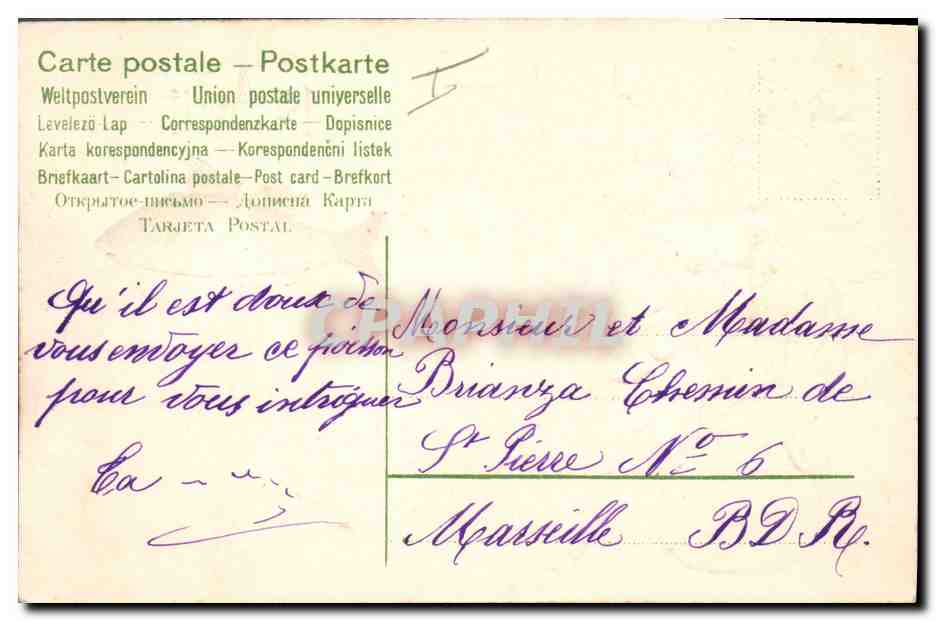 Carte postale – Postkarte
Weltpostverein – Union postale universelle
Levelező-Lap – Correspondenzkarte – Dopisnice
Karta korespondencyjna – Korespondenčni listek
Briefkaart – Cartolina postale – Post card – Brefkort
Открытое письмо — Дописна Карта
TARJETA POSTAL
Qu'il est doux de
vous envoyer ce poisson
pour vous intriguer
CPAPHIL
Monsieur et Madame
Brianza Chemin de
St Pierre No 6
Marseille BDR.